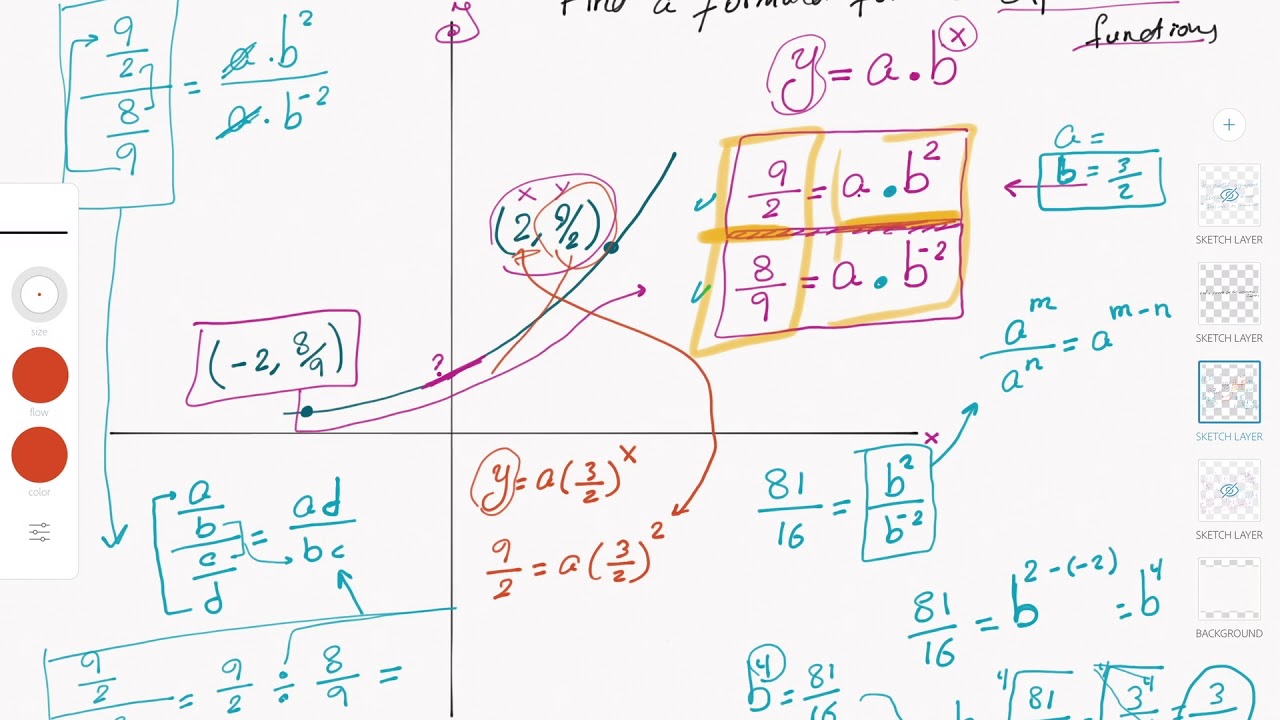 Find a formula for
functions
y = a · b^x
9/2 / 8/9 = a · b^2 / a · b^-2
9/2 = a · b^2
8/9 = a · b^-2
a =
b = 3/2
x y
(2, 9/2)
(-2, 8/9)
?
x
a^m / a^n = a^(m-n)
y = a(3/2)^x
9/2 = a(3/2)^2
81/16 = b^2 / b^-2
a/b / c/d = ad / bc
81/16 = b^(2-(-2)) = b^4
9/2 = 9/2 ÷ 8/9 =
b^4 = 81/16
4√81 = 4√3^4 = 3
size
flow
color
SKETCH LAYER
SKETCH LAYER
SKETCH LAYER
SKETCH LAYER
BACKGROUND